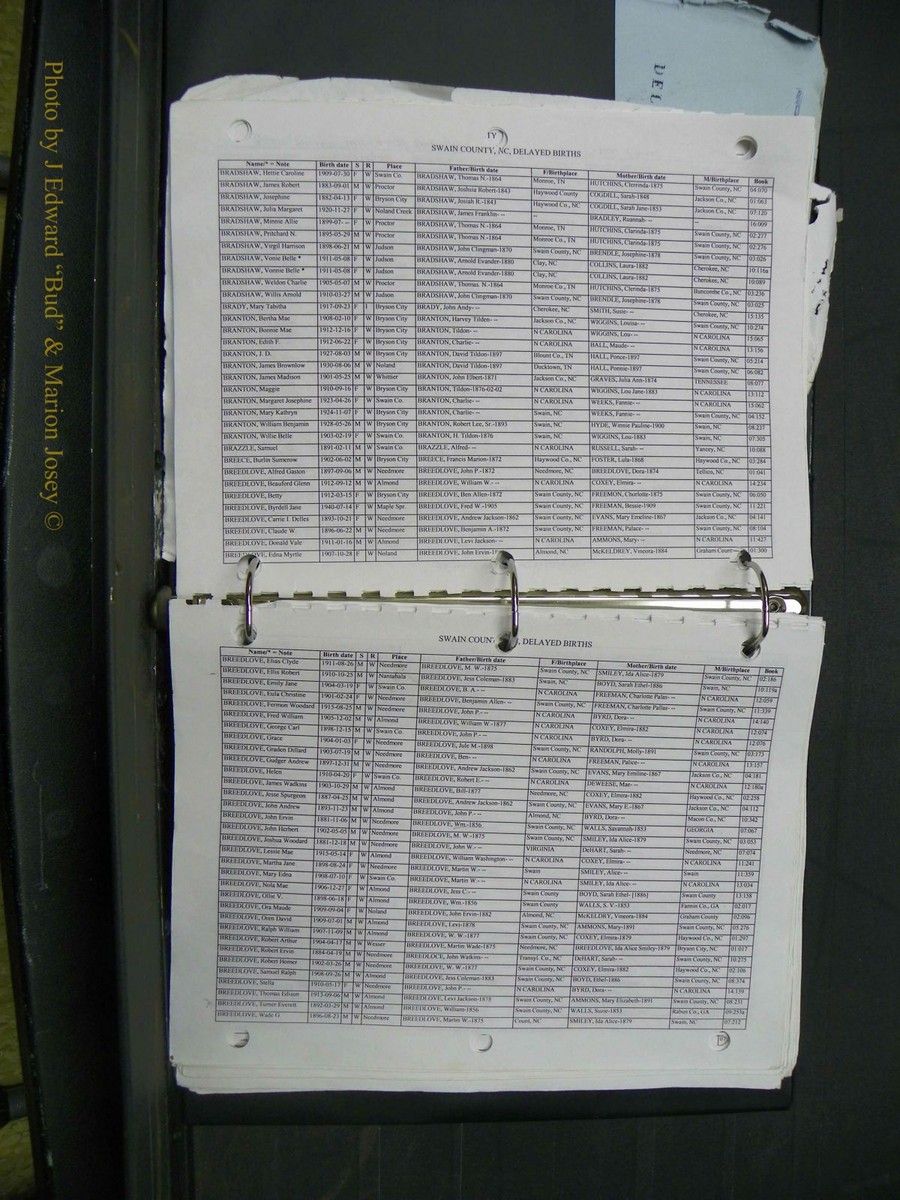 Photo by J Edward "Bud" & Marion Josey ©
DEL
TY
SWAIN COUNTY, NC, DELAYED BIRTHS
Name/* = Note Birth date S R Place Father/Birth date F/Birthplace Mother/Birth date M/Birthplace Book
BRADSHAW, Hettie Caroline 1909-07-30 F W Swain Co. BRADSHAW, Thomas N.-1864 Monroe, TN HUTCHINS, Clerinda-1875 Swain County, NC 04:070
BRADSHAW, James Robert 1883-09-01 M W Proctor BRADSHAW, Joshua Robert-1843 Haywood County COGDILL, Sarah-1848 Jackson Co., NC 01:063
BRADSHAW, Josephine 1882-04-13 F W Bryson City BRADSHAW, Josiah R.-1843 Haywood Co., NC COGDILL, Sarah Jane-1853 Jackson Co., NC 07:120
BRADSHAW, Julia Margaret 1920-11-27 F W Noland Creek BRADSHAW, James Franklin- -- -- BRADLEY, Ruannah- -- -- 16:009
BRADSHAW, Minnie Allie 1899-07- -- F W Proctor BRADSHAW, Thomas N.-1864 Monroe, TN HUTCHINS, Clerinda-1875 Swain County, NC 02:277
BRADSHAW, Pritchard N. 1895-05-29 M W Proctor BRADSHAW, Thomas N.-1864 Monroe Co., TN HUTCHINS, Clarinda-1875 Swain County, NC 02:276
BRADSHAW, Virgil Harrison 1898-06-21 M W Judson BRADSHAW, John Clingman-1870 Swain County, NC BRENDLE, Josephine-1878 Swain County, NC 03:026
BRADSHAW, Venie Belle * 1911-05-08 F W Judson BRADSHAW, Arnold Evander-1880 Clay, NC COLLINS, Laura-1882 Cherokee, NC 10:116a
BRADSHAW, Vonnie Belle * 1911-05-08 F W Judson BRADSHAW, Arnold Evander-1880 Clay, NC COLLINS, Laura-1882 Cherokee, NC 10:089
BRADSHAW, Weldon Charlie 1905-05-07 M W Proctor BRADSHAW, Thomas. N-1864 Monroe Co., TN HUTCHINS, Clerinda-1875 Buncombe Co., NC 03:236
BRADSHAW, Willis Arnold 1910-03-27 M W Judson BRADSHAW, John Clingman-1870 Swain County, NC BRENDLE, Josephine-1878 Swain County, NC 03:025
BRADY, Mary Tabitha 1917-09-23 F I Bryson City BRADY, John Andy- -- Cherokee, NC SMITH, Susie- -- Cherokee, NC 15:135
BRANTON, Bertha Mae 1908-02-10 F W Bryson City BRANTON, Harvey Tilden- -- Jackson Co., NC WIGGINS, Louisa- -- Swain County, NC 10:274
BRANTON, Bonnie Mae 1912-12-16 F W Bryson City BRANTON, Tildon- -- N CAROLINA WIGGINS, Lou- -- N CAROLINA 15:065
BRANTON, Edith F. 1912-06-22 F W Bryson City BRANTON, Charlie- -- N CAROLINA BALL, Maude- -- N CAROLINA 13:156
BRANTON, J. D. 1927-08-03 M W Bryson City BRANTON, David Tildon-1897 Blount Co., TN HALL, Ponce-1897 Swain County, NC 05:214
BRANTON, James Brownlow 1930-08-06 M W Noland BRANTON, David Tildon-1897 Ducktown, TN HALL, Ponnie-1897 Swain County, NC 06:082
BRANTON, James Madison 1901-05-25 M W Whittier BRANTON, John Elbert-1871 Jackson Co., NC GRAVES, Julia Ann-1874 TENNESSEE 08:077
BRANTON, Maggie 1910-09-16 F W Bryson City BRANTON, Tildon-1876-02-02 N CAROLINA WIGGINS, Lou Jane-1883 N CAROLINA 13:112
BRANTON, Margaret Josephine 1923-04-26 F W Swain Co. BRANTON, Charlie- -- N CAROLINA WEEKS, Fannie- -- N CAROLINA 15:062
BRANTON, Mary Kathryn 1924-11-07 F W Bryson City BRANTON, Charlie- -- Swain, NC WEEKS, Fannie- -- Swain County, NC 04:152
BRANTON, William Benjamin 1928-05-26 M W Bryson City BRANTON, Robert Lee, Sr.-1893 Swain, NC HYDE, Winnie Pauline-1900 Swain, NC 08:237
BRANTON, Willie Belle 1903-02-19 F W Swain Co. BRANTON, H. Tildon-1876 Swain, NC WIGGINS, Lou-1883 Swain, NC 07:305
BRAZZLE, Samuel 1891-02-11 M W Swain Co. BRAZZLE, Alfred- -- N CAROLINA RUSSELL, Sarah- -- Yancey, NC 10:088
BREECE, Burlin Sumerow 1902-06-02 M W Bryson City BREECE, Francis Marion-1872 Haywood Co., NC FOSTER, Lula-1868 Haywood Co., NC 03:284
BREEDLOVE, Alfred Gaston 1897-09-06 M W Needmore BREEDLOVE, John P.-1872 Needmore, NC BREEDLOVE, Dora-1874 Tellico, NC 01:041
BREEDLOVE, Beauford Glenn 1912-09-12 M W Almond BREEDLOVE, William W.- -- N CAROLINA COXEY, Elmira- -- N CAROLINA 14:234
BREEDLOVE, Betty 1912-03-15 F W Bryson City BREEDLOVE, Ben Allen-1872 Swain County, NC FREEMON, Charlotte-1875 Swain County, NC 06:050
BREEDLOVE, Byrdell Jane 1940-07-14 F W Maple Spr. BREEDLOVE, Fred W.-1905 Swain County, NC FREEMAN, Bessie-1909 Swain County, NC 11:221
BREEDLOVE, Carrie I. Delles 1893-10-21 F W Needmore BREEDLOVE, Andrew Jackson-1862 Swain County, NC EVANS, Mary Emeline-1867 Jackson Co., NC 04:141
BREEDLOVE, Claude W. 1896-06-22 M W Needmore BREEDLOVE, Benjamin A.-1872 Swain County, NC FREEMAN, Palace- -- Swain County, NC 08:104
BREEDLOVE, Donald Vale 1911-01-16 M W Almond BREEDLOVE, Levi Jackson- -- N CAROLINA AMMONS, Mary- -- N CAROLINA 11:427
BREEDLOVE, Edna Myrtle 1907-10-28 F W Noland BREEDLOVE, John Ervin-18 Almond, NC McKELDREY, Vineora-1884 Graham County 01:300
SWAIN COUN , DELAYED BIRTHS
Name/* = Note Birth date S R Place Father/Birth date F/Birthplace Mother/Birth date M/Birthplace Book
BREEDLOVE, Elias Clyde 1911-08-26 M W Needmore BREEDLOVE, M. W.-1875 Swain County, NC SMILEY, Ida Alice-1879 Swain County, NC 02:186
BREEDLOVE, Ellis Robert 1910-10-25 M W Nantahala BREEDLOVE, Jess Coleman-1883 Swain, NC BOYD, Sarah Ethel-1886 Swain, NC 10:119a
BREEDLOVE, Emily Jane 1904-03-19 F W Swain Co. BREEDLOVE, B. A.- -- N CAROLINA FREEMAN, Charlotte Palas- -- N CAROLINA 12:059
BREEDLOVE, Eula Christine 1901-02-24 F W Needmore BREEDLOVE, Benjamin Allen- -- Swain County, NC FREEMAN, Charlotte Pallas- -- Swain County, NC 11:339
BREEDLOVE, Ferman Woodard 1915-08-25 M W Needmore BREEDLOVE, John P.- -- N CAROLINA BYRD, Dora- -- N CAROLINA 14:140
BREEDLOVE, Fred William 1905-12-02 M W Almond BREEDLOVE, William W.-1877 N CAROLINA COXEY, Elmira-1882 N CAROLINA 12:074
BREEDLOVE, George Carl 1898-12-15 M W Swain Co. BREEDLOVE, John P.- -- N CAROLINA BYRD, Dora- -- N CAROLINA 12:076
BREEDLOVE, Grace 1904-01-03 F W Needmore BREEDLOVE, Jule M.-1898 Swain County, NC RANDOLPH, Molly-1891 Swain County, NC 03:173
BREEDLOVE, Graden Dillard 1903-07-19 M W Needmore BREEDLOVE, Ben- -- N CAROLINA FREEMAN, Palice- -- N CAROLINA 13:157
BREEDLOVE, Gudger Andrew 1897-12-31 M W Needmore BREEDLOVE, Andrew Jackson-1862 Swain County, NC EVANS, Mary Emiline-1867 Jackson Co., NC 04:181
BREEDLOVE, Helen 1910-04-20 F W Swain Co. BREEDLOVE, Robert E.- -- N CAROLINA DEWEESE, Mae- -- N CAROLINA 12:180a
BREEDLOVE, James Watkins 1903-10-29 M W Almond BREEDLOVE, Bill-1877 Needmore, NC COXEY, Elmira-1882 Haywood Co., NC 02:258
BREEDLOVE, Jesse Spurgeon 1887-04-25 M W Almond BREEDLOVE, Andrew Jackson-1862 Swain County, NC EVANS, Mary E.-1867 Jackson Co., NC 04:112
BREEDLOVE, John Andrew 1893-11-23 M W Almond BREEDLOVE, John P.- -- Almond, NC BYRD, Dora- -- Macon Co., NC 10:342
BREEDLOVE, John Ervin 1881-11-06 M W Needmore BREEDLOVE, Wm.-1856 Swain County, NC WALLS, Savannah-1853 GEORGIA 07:067
BREEDLOVE, John Herbert 1902-05-05 M W Needmore BREEDLOVE, M. W.-1875 Swain County, NC SMILEY, Ida Alice-1879 Swain County, NC 03:053
BREEDLOVE, Joshua Woodard 1881-12-18 M W Needmore BREEDLOVE, John W.- -- VIRGINIA DeHART, Sarah- -- Needmore, NC 07:074
BREEDLOVE, Lessie Mae 1913-05-14 F W Almond BREEDLOVE, William Washington- -- N CAROLINA COXEY, Elmira- -- N CAROLINA 11:241
BREEDLOVE, Martha Jane 1898-08-24 F W Needmore BREEDLOVE, Martin W.- -- Swain SMILEY, Alice- -- Swain 11:359
BREEDLOVE, Mary Edna 1908-07-10 F W Swain Co. BREEDLOVE, Martin W.- -- N CAROLINA SMILEY, Ida Alice- -- N CAROLINA 13:034
BREEDLOVE, Nola Mae 1906-12-27 F W Almond BREEDLOVE, Jess C.- -- Swain County BOYD, Sarah Ethel- [1886] Swain County 13:158
BREEDLOVE, Ollie V. 1898-06-18 F W Almond BREEDLOVE, Wm.-1856 Swain County WALLS, S. V.-1853 Fannin Co., GA 02:017
BREEDLOVE, Ora Maude 1909-09-04 F W Noland BREEDLOVE, John Ervin-1882 Almond, NC McKELDRY, Vineora-1884 Graham County 02:096
BREEDLOVE, Oren David 1909-07-01 M W Almond BREEDLOVE, Levi-1878 Swain County, NC AMMONS, Mary-1891 Swain County, NC 05:276
BREEDLOVE, Ralph William 1907-11-09 M W Almond BREEDLOVE, W. W.-1877 Swain County, NC COXEY, Elmira-1879 Haywood Co., NC 01:297
BREEDLOVE, Robert Arthur 1904-04-17 M W Wesser BREEDLOVE, Martin Wade-1875 Needmore, NC BREEDLOVE, Ida Alice Smiley-1879 Bryson City, NC 01:017
BREEDLOVE, Robert Ervin 1884-04-19 M W Needmore BREEDLOCE, John Watkins- -- Transyl. Co., NC DeHART, Sarah- -- Swain County, NC 10:275
BREEDLOVE, Robert Homer 1902-03-26 M W Needmore BREEDLOVE, W. W.-1877 Swain County, NC COXEY, Elmira-1882 Haywood Co., NC 02:108
BREEDLOVE, Samuel Ralph 1908-09-26 M W Almond BREEDLOVE, Jess Coleman-1883 Swain County, NC BOYD, Ethel-1886 Swain County, NC 08:374
BREEDLOVE, Stella 1910-05-17 F W Needmore BREEDLOVE, John P.- -- N CAROLINA BYRD, Dora- -- N CAROLINA 14:139
BREEDLOVE, Thomas Edison 1913-09-06 M W Almond BREEDLOVE, Levi Jackson-1878 Swain County, NC AMMONS, Mary Elizabeth-1891 Swain County, NC 09:231
BREEDLOVE, Turner Everett 1892-03-29 M W Almond BREEDLOVE, William-1856 Swain County, NC WALLS, Sucie-1853 Rabun Co., GA 09:255a
BREEDLOVE, Wade G. 1896-08-23 M W Needmore BREEDLOVE, Martin W.-1875 Count, NC SMILEY, Ida Alice-1879 Swain, NC 07:212